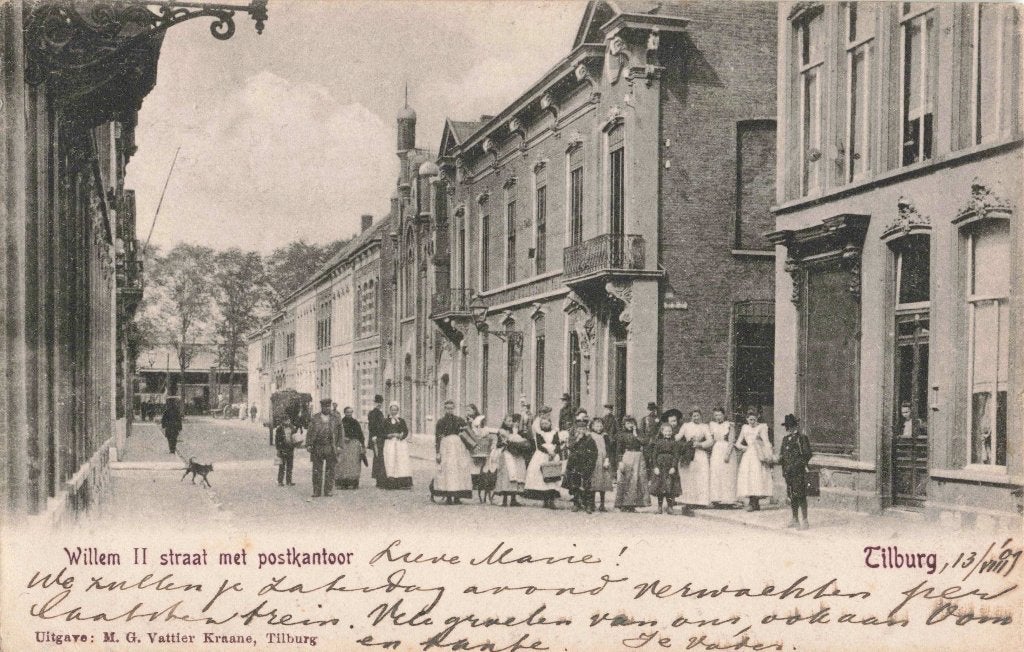 Willem II straat met postkantoor Lieve Marie! Tilburg, 13/VIII '01
We zullen je Zaterdag avond verwachten per
laatsten trein. Vele groeten van ons, ook aan Oom
Uitgave: M. G. Vattier Kraane, Tilburg en tante. Je Vader.